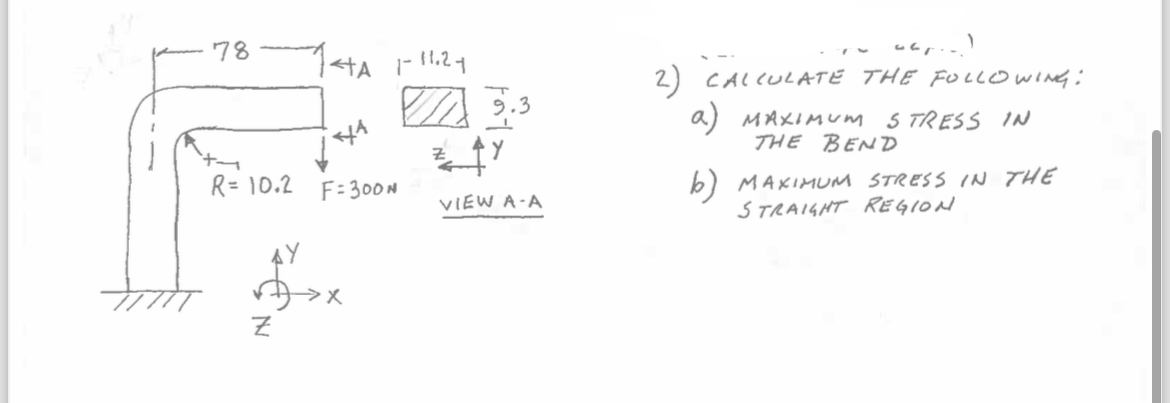 78
A
11.2
9.3
A
Z
Y
R= 10.2
F=300N
VIEW A-A
Y
X
Z
2) CALCULATE THE FOLLOWING:
a) MAXIMUM STRESS IN
THE BEND
b) MAXIMUM STRESS IN THE
STRAIGHT REGION